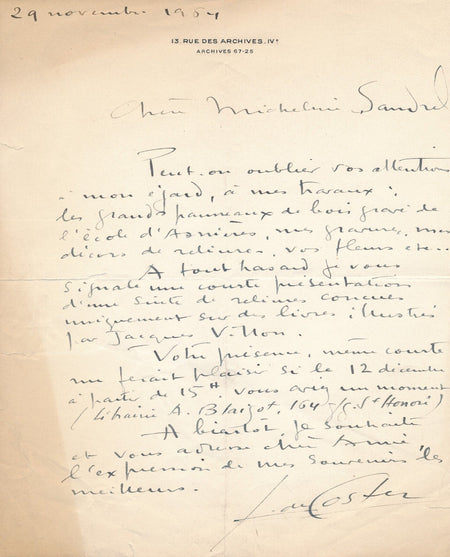 29 novembre 1954
13. RUE DES ARCHIVES. IVe
ARCHIVES 67-25
Chère Micheline Sandrel
Peut-on oublier vos attentions
à mon égard, à mes travaux:
les grands panneaux de bois gravé de
l'école d'Asnières, mes gravures, mes
décors de reliures, vos fleurs etc..
A tout hasard je vous
signale une courte présentation
d'une suite de reliures conçues
uniquement sur des livres illustrés
par Jacques Villon.
Votre présence, même courte
me ferait plaisir si le 12 décembre
à partir de 15H vous aviez un moment
(Librairie A. Blaizot, 164 - fg. St Honoré)
A bientôt je souhaite
et vous adresse chère Amie
l'expression de mes souvenirs les
meilleurs.
de Coster